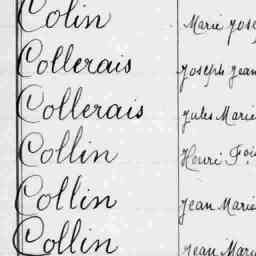 Colin Marie Jose
Collerais Joseph Jean
Collerais Jules Marie
Collin Henri Foi
Collin Jean Marie
Collin Jean Marie